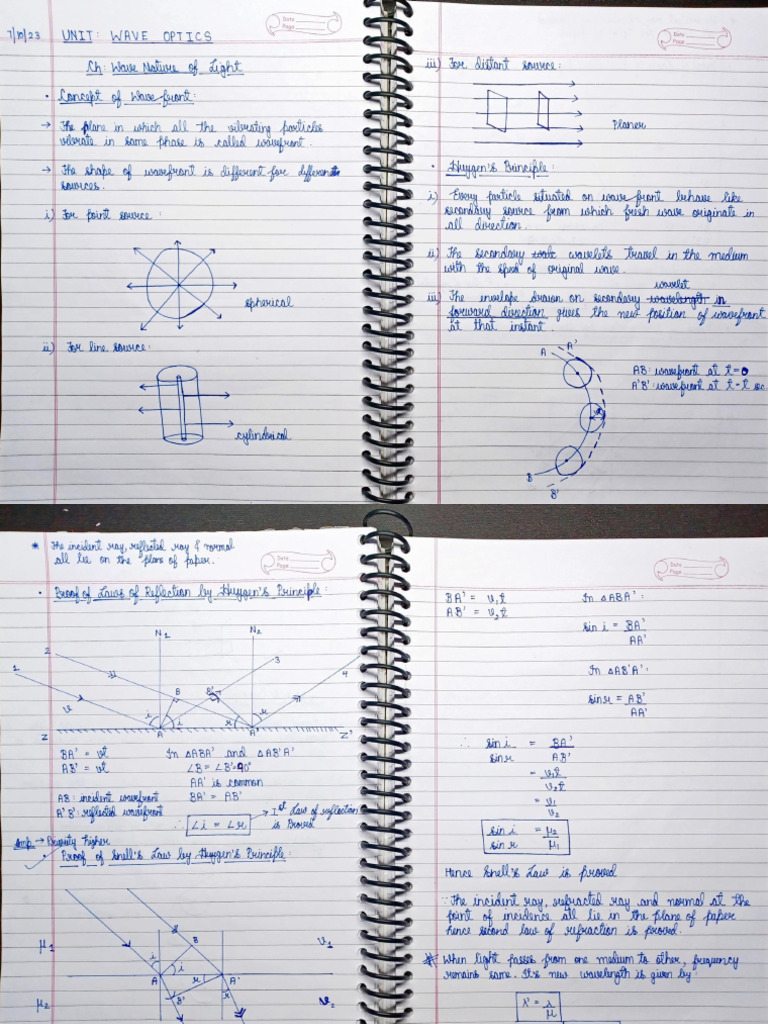 7/10/23
UNIT: WAVE OPTICS
Date
Page
Ch: Wave Nature of Light
• Concept of Wave front:
→ The plane in which all the vibrating particles
vibrate in same phase is called wavefront.
→ The shape of wavefront is different for different
sources.
i) For point source:
spherical
ii) For line source:
cylindrical
Date
Page
iii) For distant source:
Planer
• Huygen's Principle:
i) Every particle situated on wave front behave like
secondary source from which fresh wave originate in
all direction.
ii) The secondary wavelets travel in the medium
with the sped of original wave.
wavelet
iii) The envelope drawn on secondary wavelength in
forward direction gives the new position of wavefront
at that instant.
A A'
AB: wavefront at t=0
A'B': wavefront at t=t sc
B
B'
* The incident ray, reflected ray & normal
all lie on the plane of paper.
Date
Page
• Proof of Laws of Reflection by Huygen's Principle:
N1 N2
1 2 3 4
B B'
v
i i r r
Z A A' Z'
BA' = vt
AB' = vt
AB: incident wavefront
A'B': reflected wavefront
In △ABA' and △AB'A'
∠B = ∠B' = 90°
AA' is common
BA' = AB'
∴ ∠i = ∠r → Ist Law of reflection
is Proved
Imp → Property Higher
• Proof of Snell's Law by Huygen's Principle:
μ1 B v1
i i
A r A'
μ2 B' r v2
Date
Page
BA' = v1t
AB' = v2t
In △ABA':
sin i = BA'
AA'
In △AB'A':
sin r = AB'
AA'
∴ sin i = BA'
sin r AB'
= v1t
v2t
= v1
v2
sin i = μ2
sin r μ1
Hence Snell's Law is proved
∵ The incident ray, refracted ray and normal at the
point of incidence all lie in the plane of paper
hence second law of refraction is proved.
* When light passes from one medium to other, frequency
remains same. It's new wavelength is given by:
λ' = λ
μ